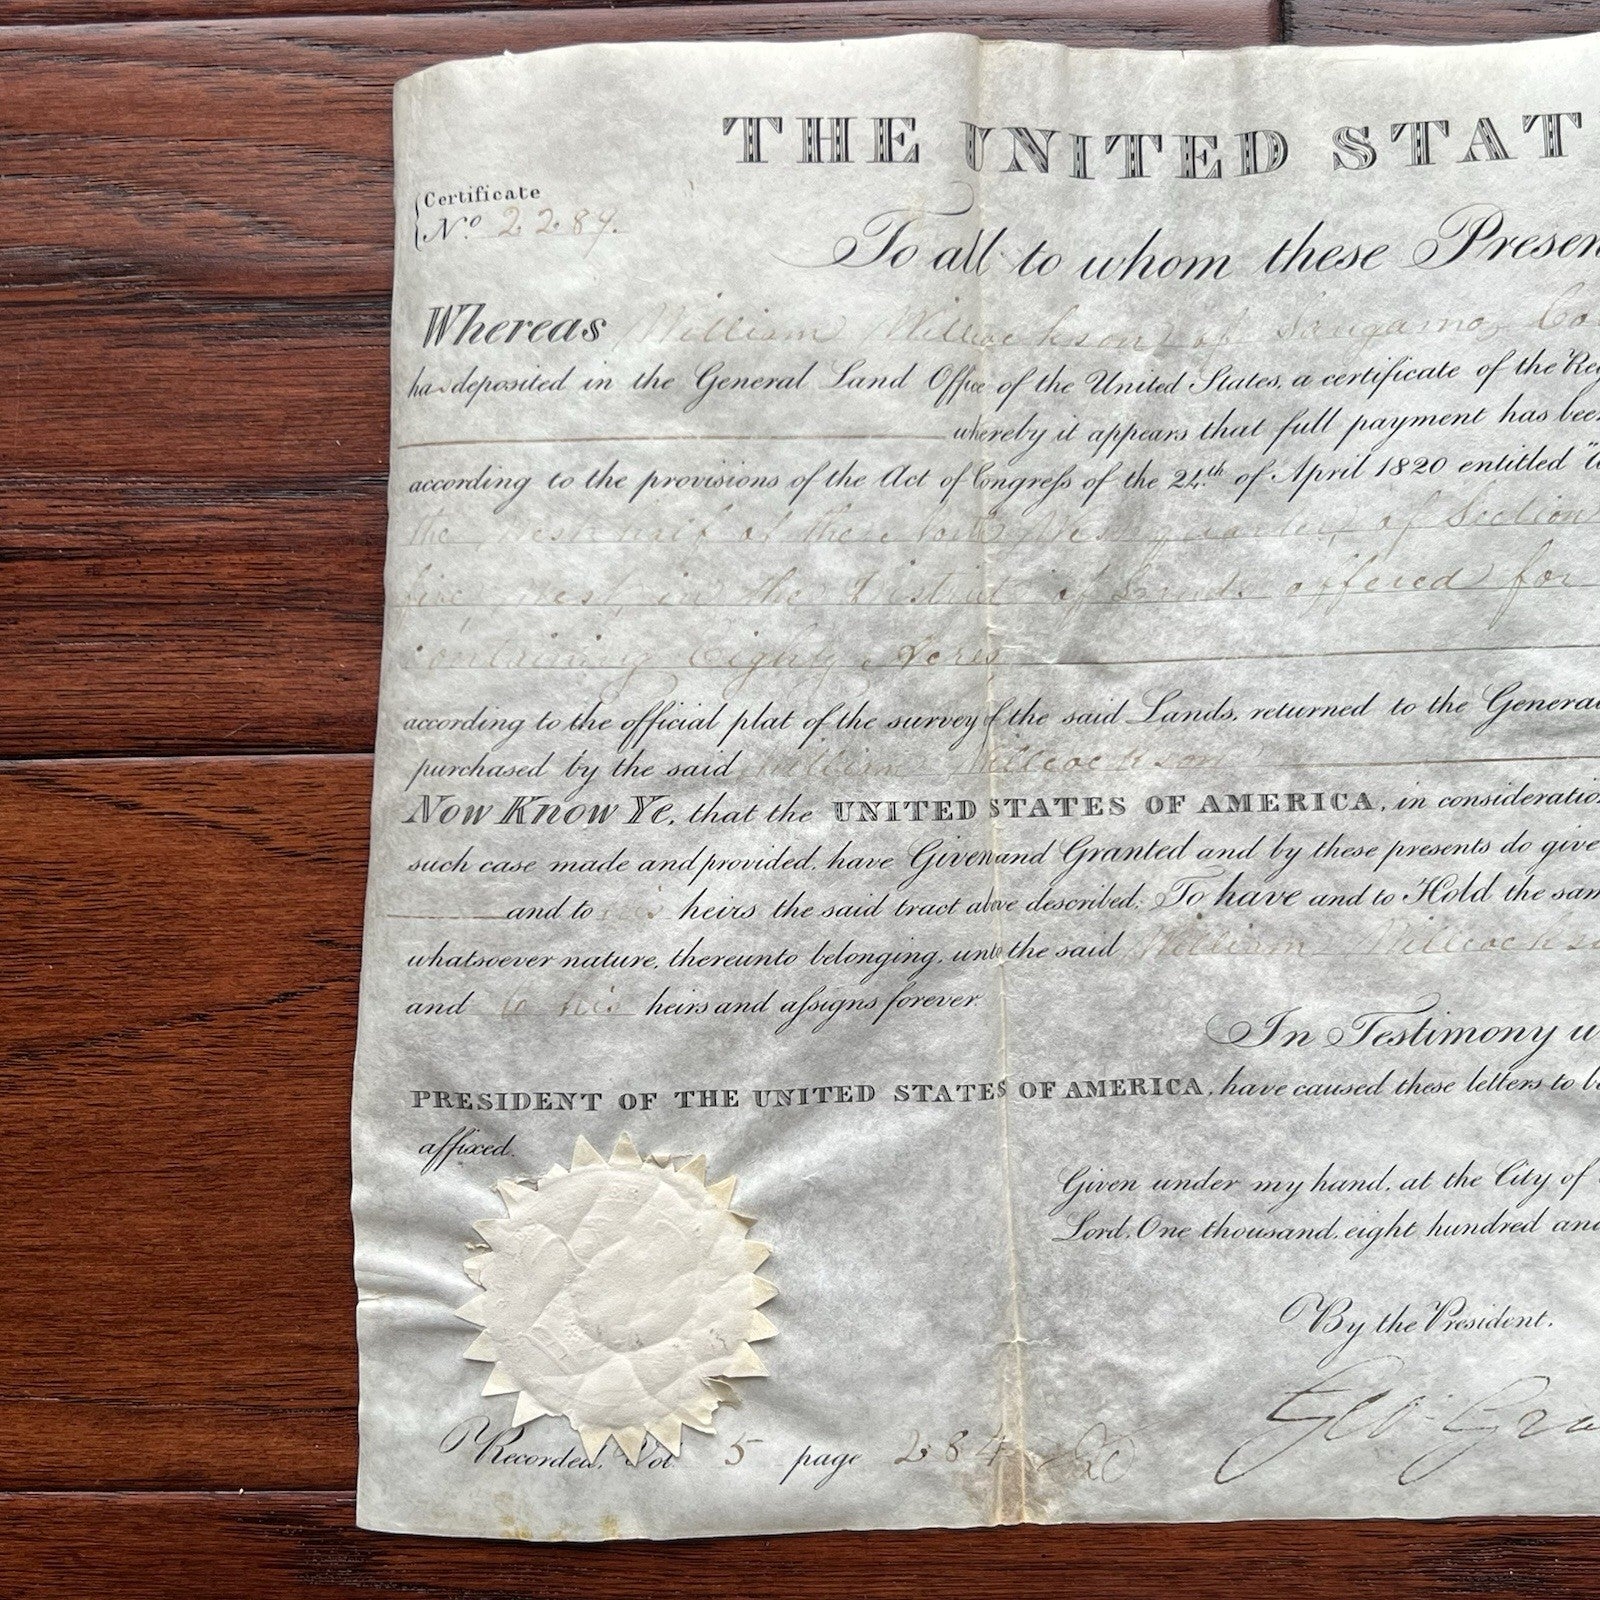 THE UNITED STAT
Certificate
No. 2287.
To all to whom these Presen
Whereas William Willcockson, of Sangamo, Co
has deposited in the General Land Office of the United States, a certificate of the Reg
whereby it appears that full payment has bee
according to the provisions of the Act of Congress of the 24th of April 1820 entitled "
the West half of the West quarter, of Section
five, west, in the District of Lands offered for
containing Eighty Acres
according to the official plat of the survey of the said Lands, returned to the Genera
purchased by the said William Willcockson
Now Know Ye, that the UNITED STATES OF AMERICA, in consideratio
such case made and provided, have Given and Granted and by these presents do give
and to his heirs the said tract above described; To have and to Hold the sam
whatsoever nature, thereunto belonging, unto the said William Willcockso
and to his heirs and assigns forever.
In Testimony w
PRESIDENT OF THE UNITED STATES OF AMERICA, have caused these letters to b
affixed.
Given under my hand, at the City of
Lord, One thousand, eight hundred and
By the President.
Geo. Gra
Recorded, Vol. 5 page 284